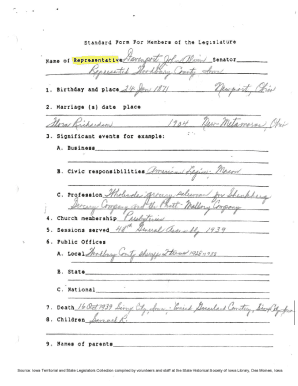 Standard Form For Members of the Legislature
Name of Representative Davenport, John Senator
Represented Woodbury County, Iowa
1. Birthday and place 24 Jan 1871 Newport, Ohio
2. Marriage (s) date place
Richardson 1904 New Matamoras, Ohio
3. Significant events for example:
A. Business
B. Civic responsibilities American Legion; Mason
C. Profession grocery salesman for
Grocery Company and the Mallory Company
4. Church membership Presbyterian
5. Sessions served 48th General Assembly 1939
6. Public Offices
A. Local Woodbury County
B. State
C. National
7. Death 16 Oct 1939 Sioux City, Iowa Cemetery, Sioux City, Iowa
8. Children Samuel R.
9. Names of parents
Source: Iowa Territorial and State Legislators Collection compiled by volunteers and staff at the State Historical Society of Iowa Library, Des Moines, Iowa.